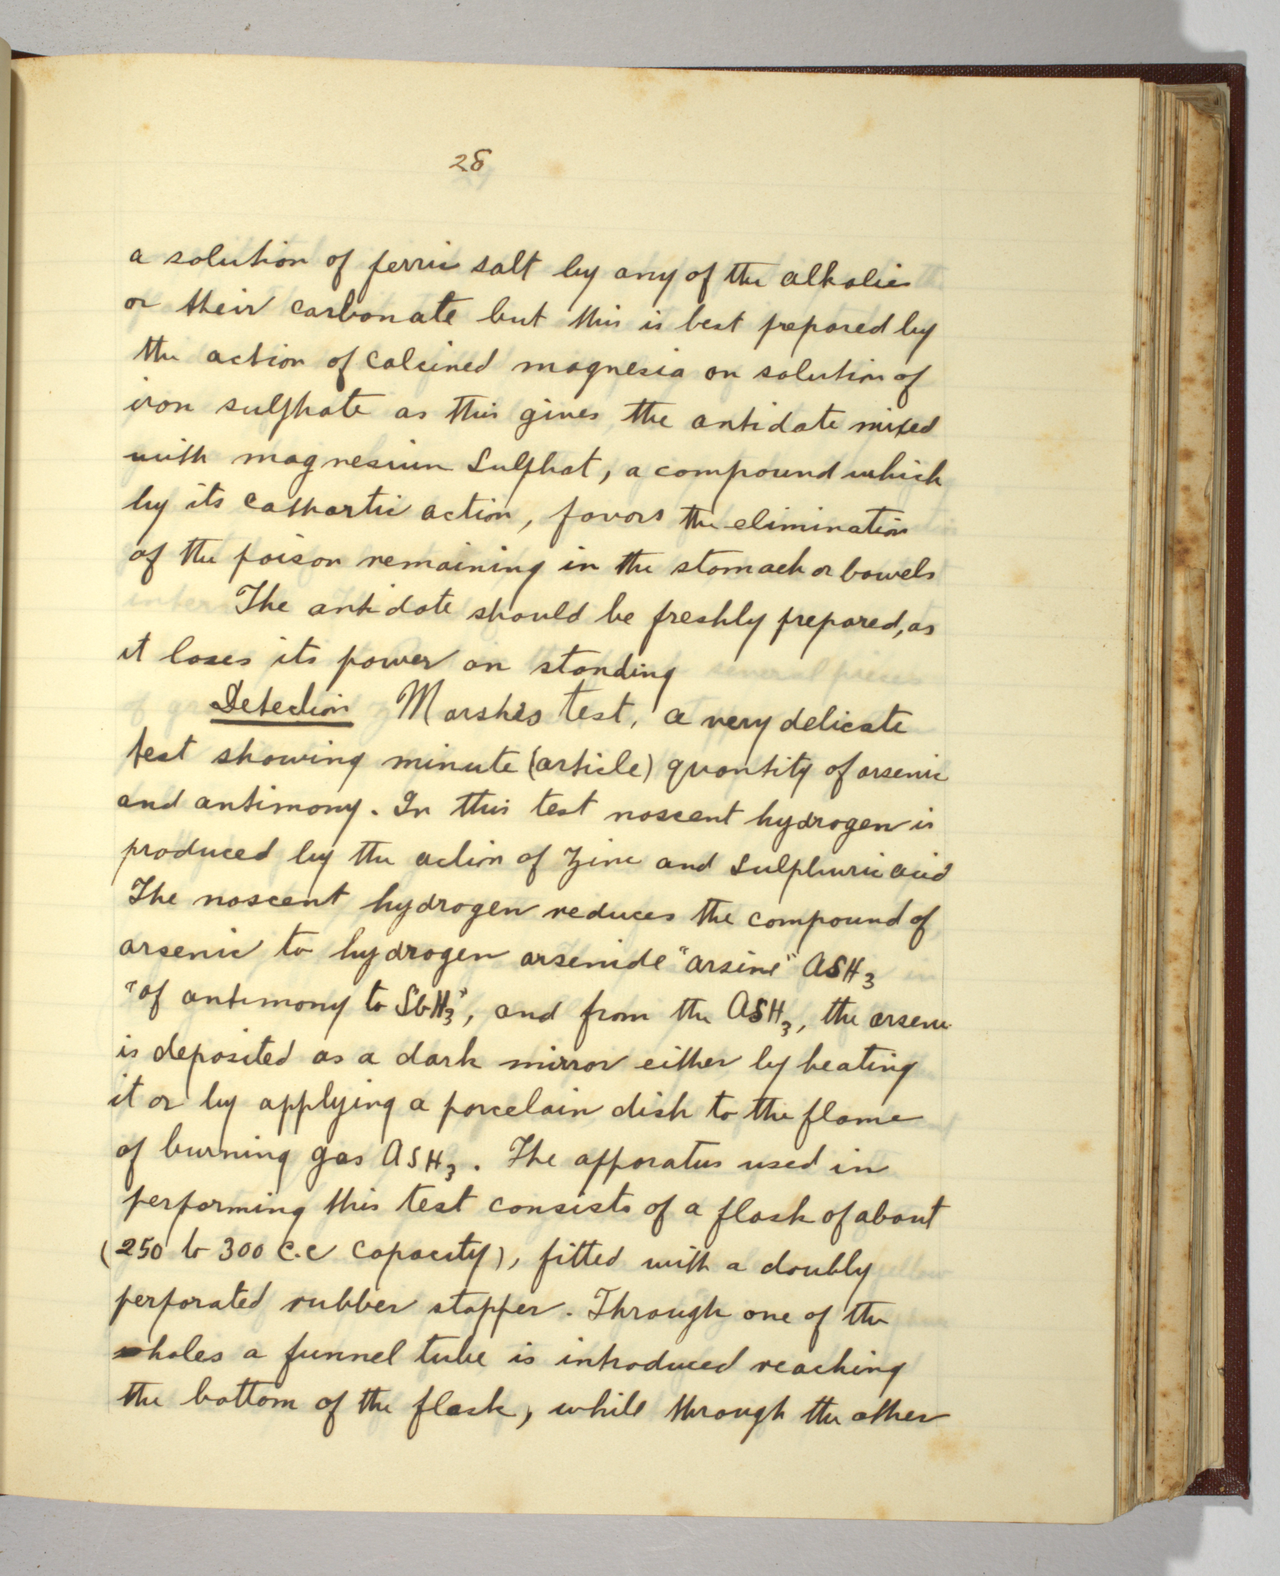 28
a solution of ferric salt by any of the alkalies
or their carbonate but this is best prepared by
the action of calcined magnesia on solution of
iron sulphate as this gives the antidote mixed
with magnesium Sulphat, a compound which
by its cathartic action, favors the elimination
of the poison remaining in the stomach or bowels
The antidote should be freshly prepared, as
it loses its power on standing
Detection Marshes Test, a very delicate
test showing minute (article) quantity of arsenic
and antimony. In this test nascent hydrogen is
produced by the action of Zinc and Sulphuric acid
The nascent hydrogen reduces the compound of
arsenic to hydrogen arsenide "arsine" ASH3
"of antimony to SbH3", and from the ASH3, the arsenic
is deposited as a dark mirror either by heating
it or by applying a porcelain dish to the flame
of burning gas ASH3. The apparatus used in
performing this test consists of a flask of about
(250 to 300 c.c capacity), fitted with a doubly
perforated rubber stopper. Through one of the
holes a funnel tube is introduced reaching
the bottom of the flask, while through the other